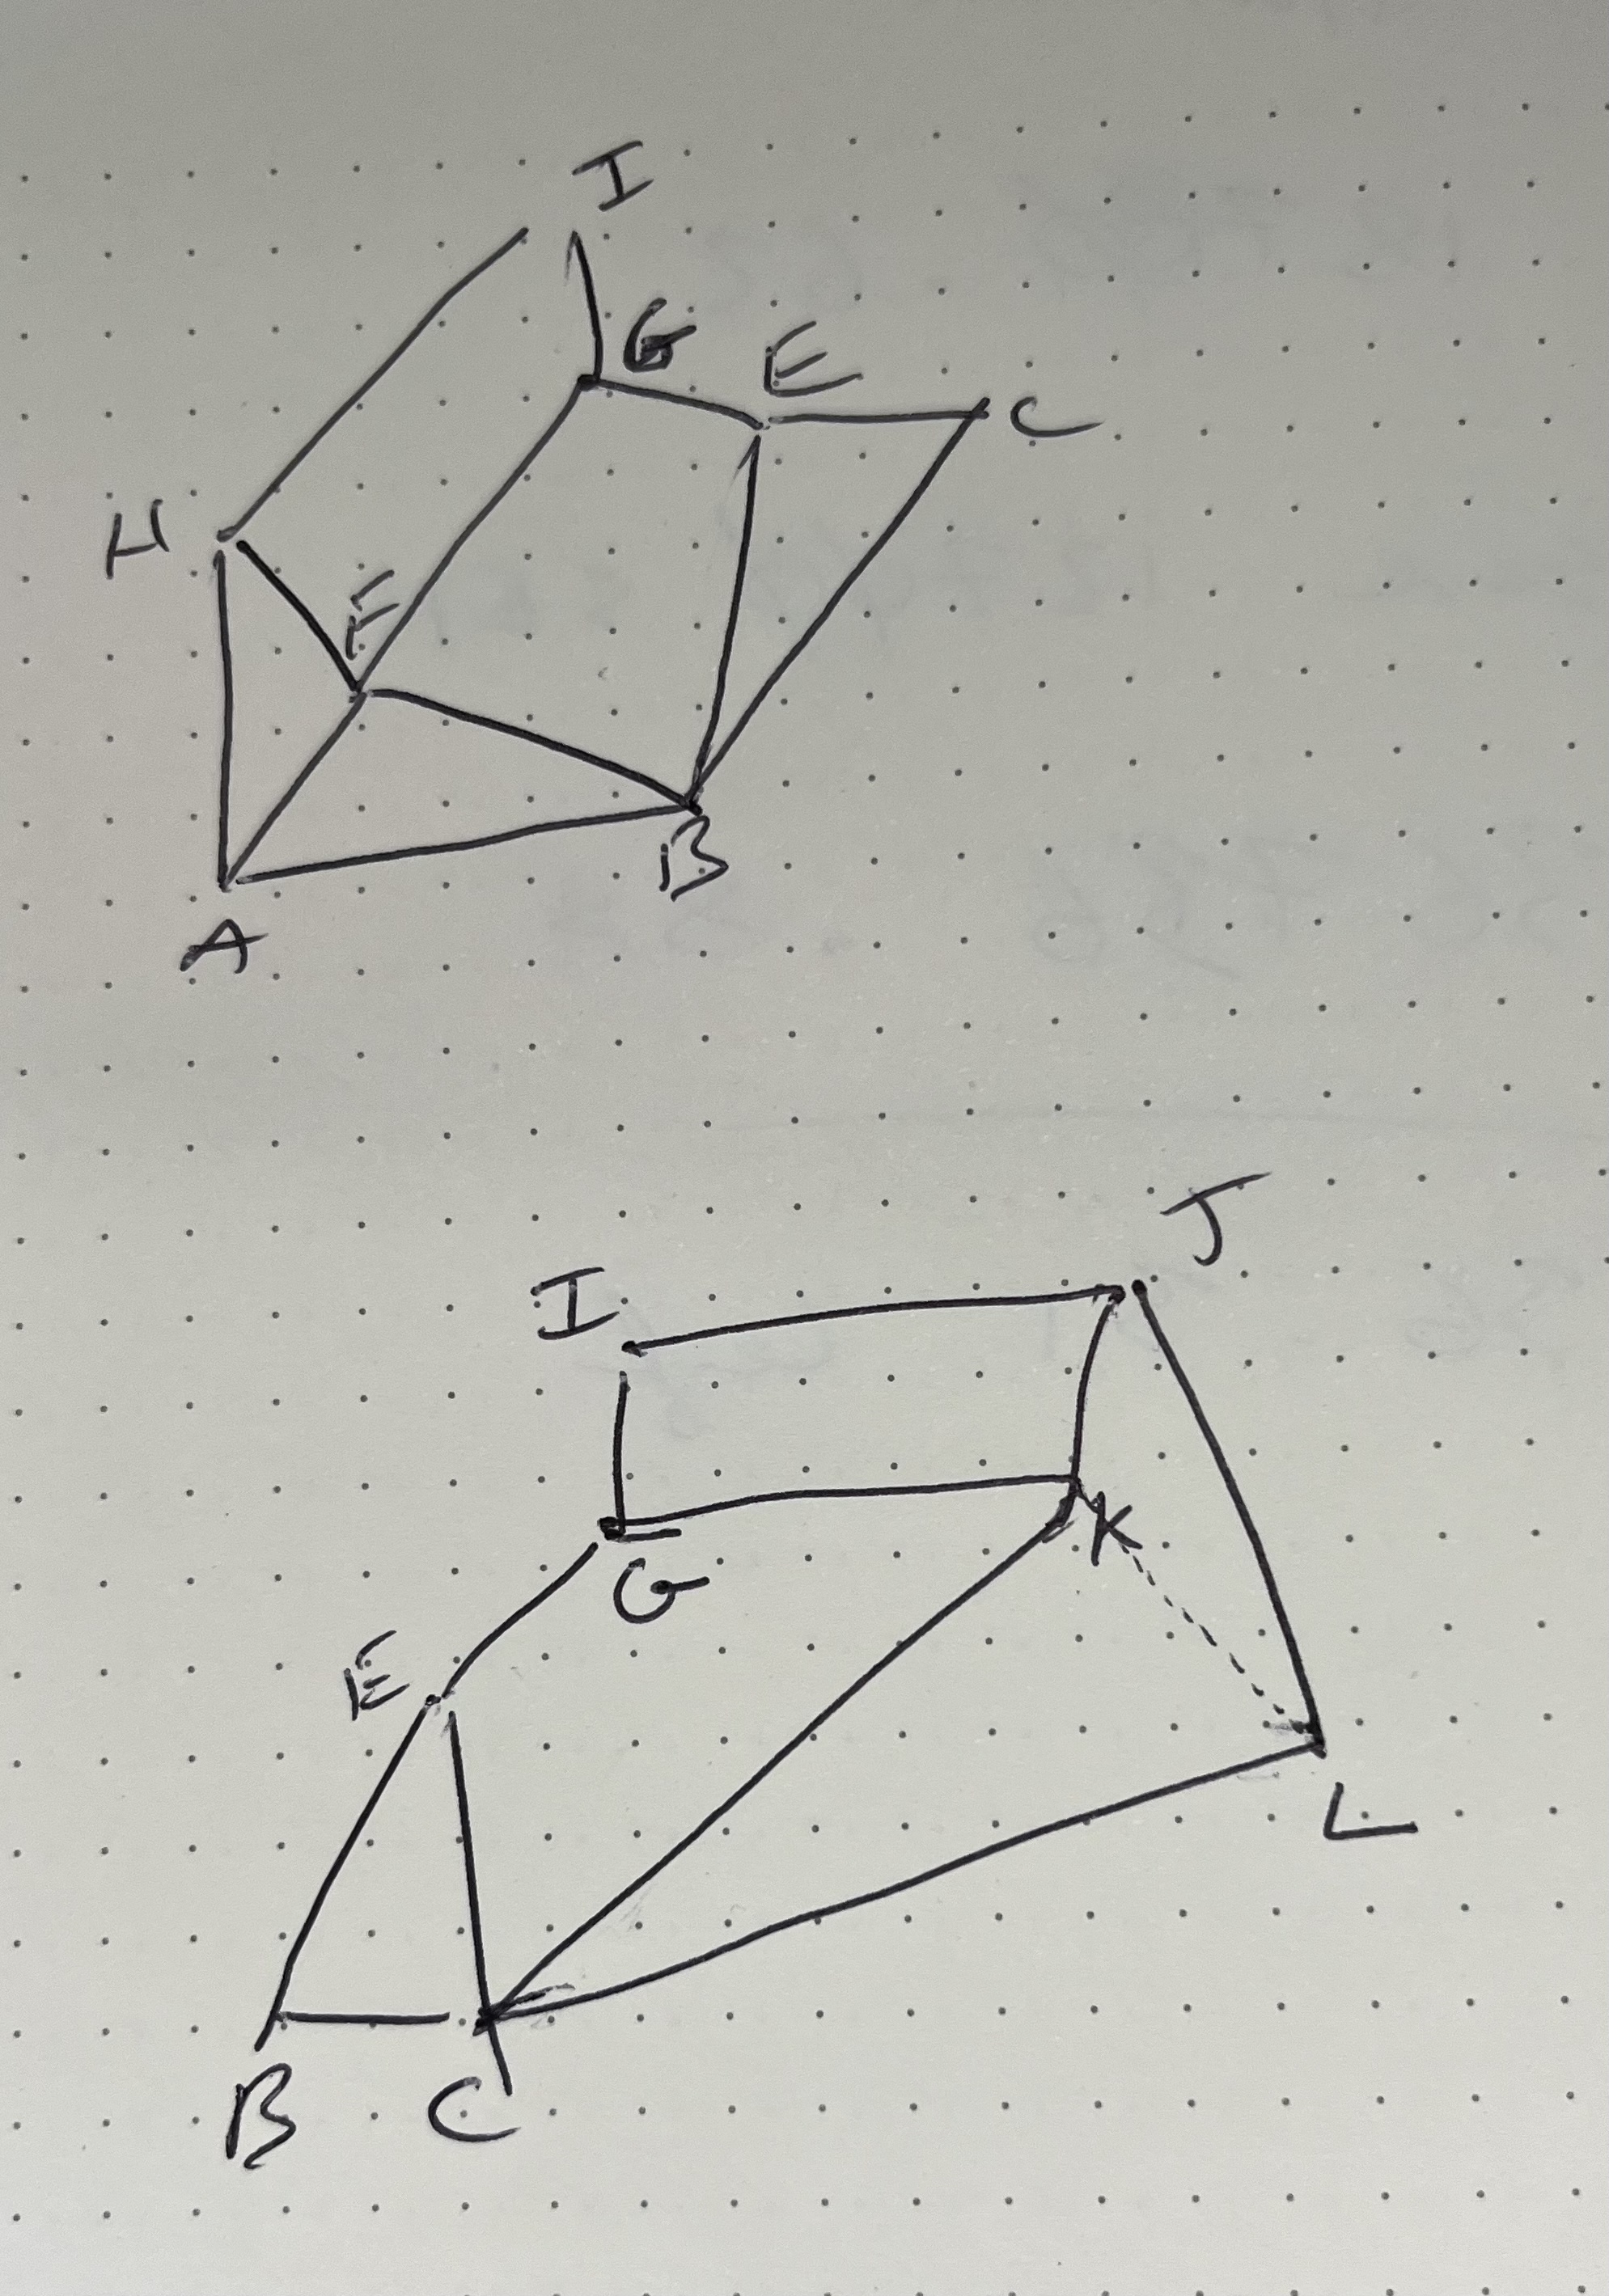 I
G
E
C
H
F
B
A
J
I
K
G
E
L
B
C